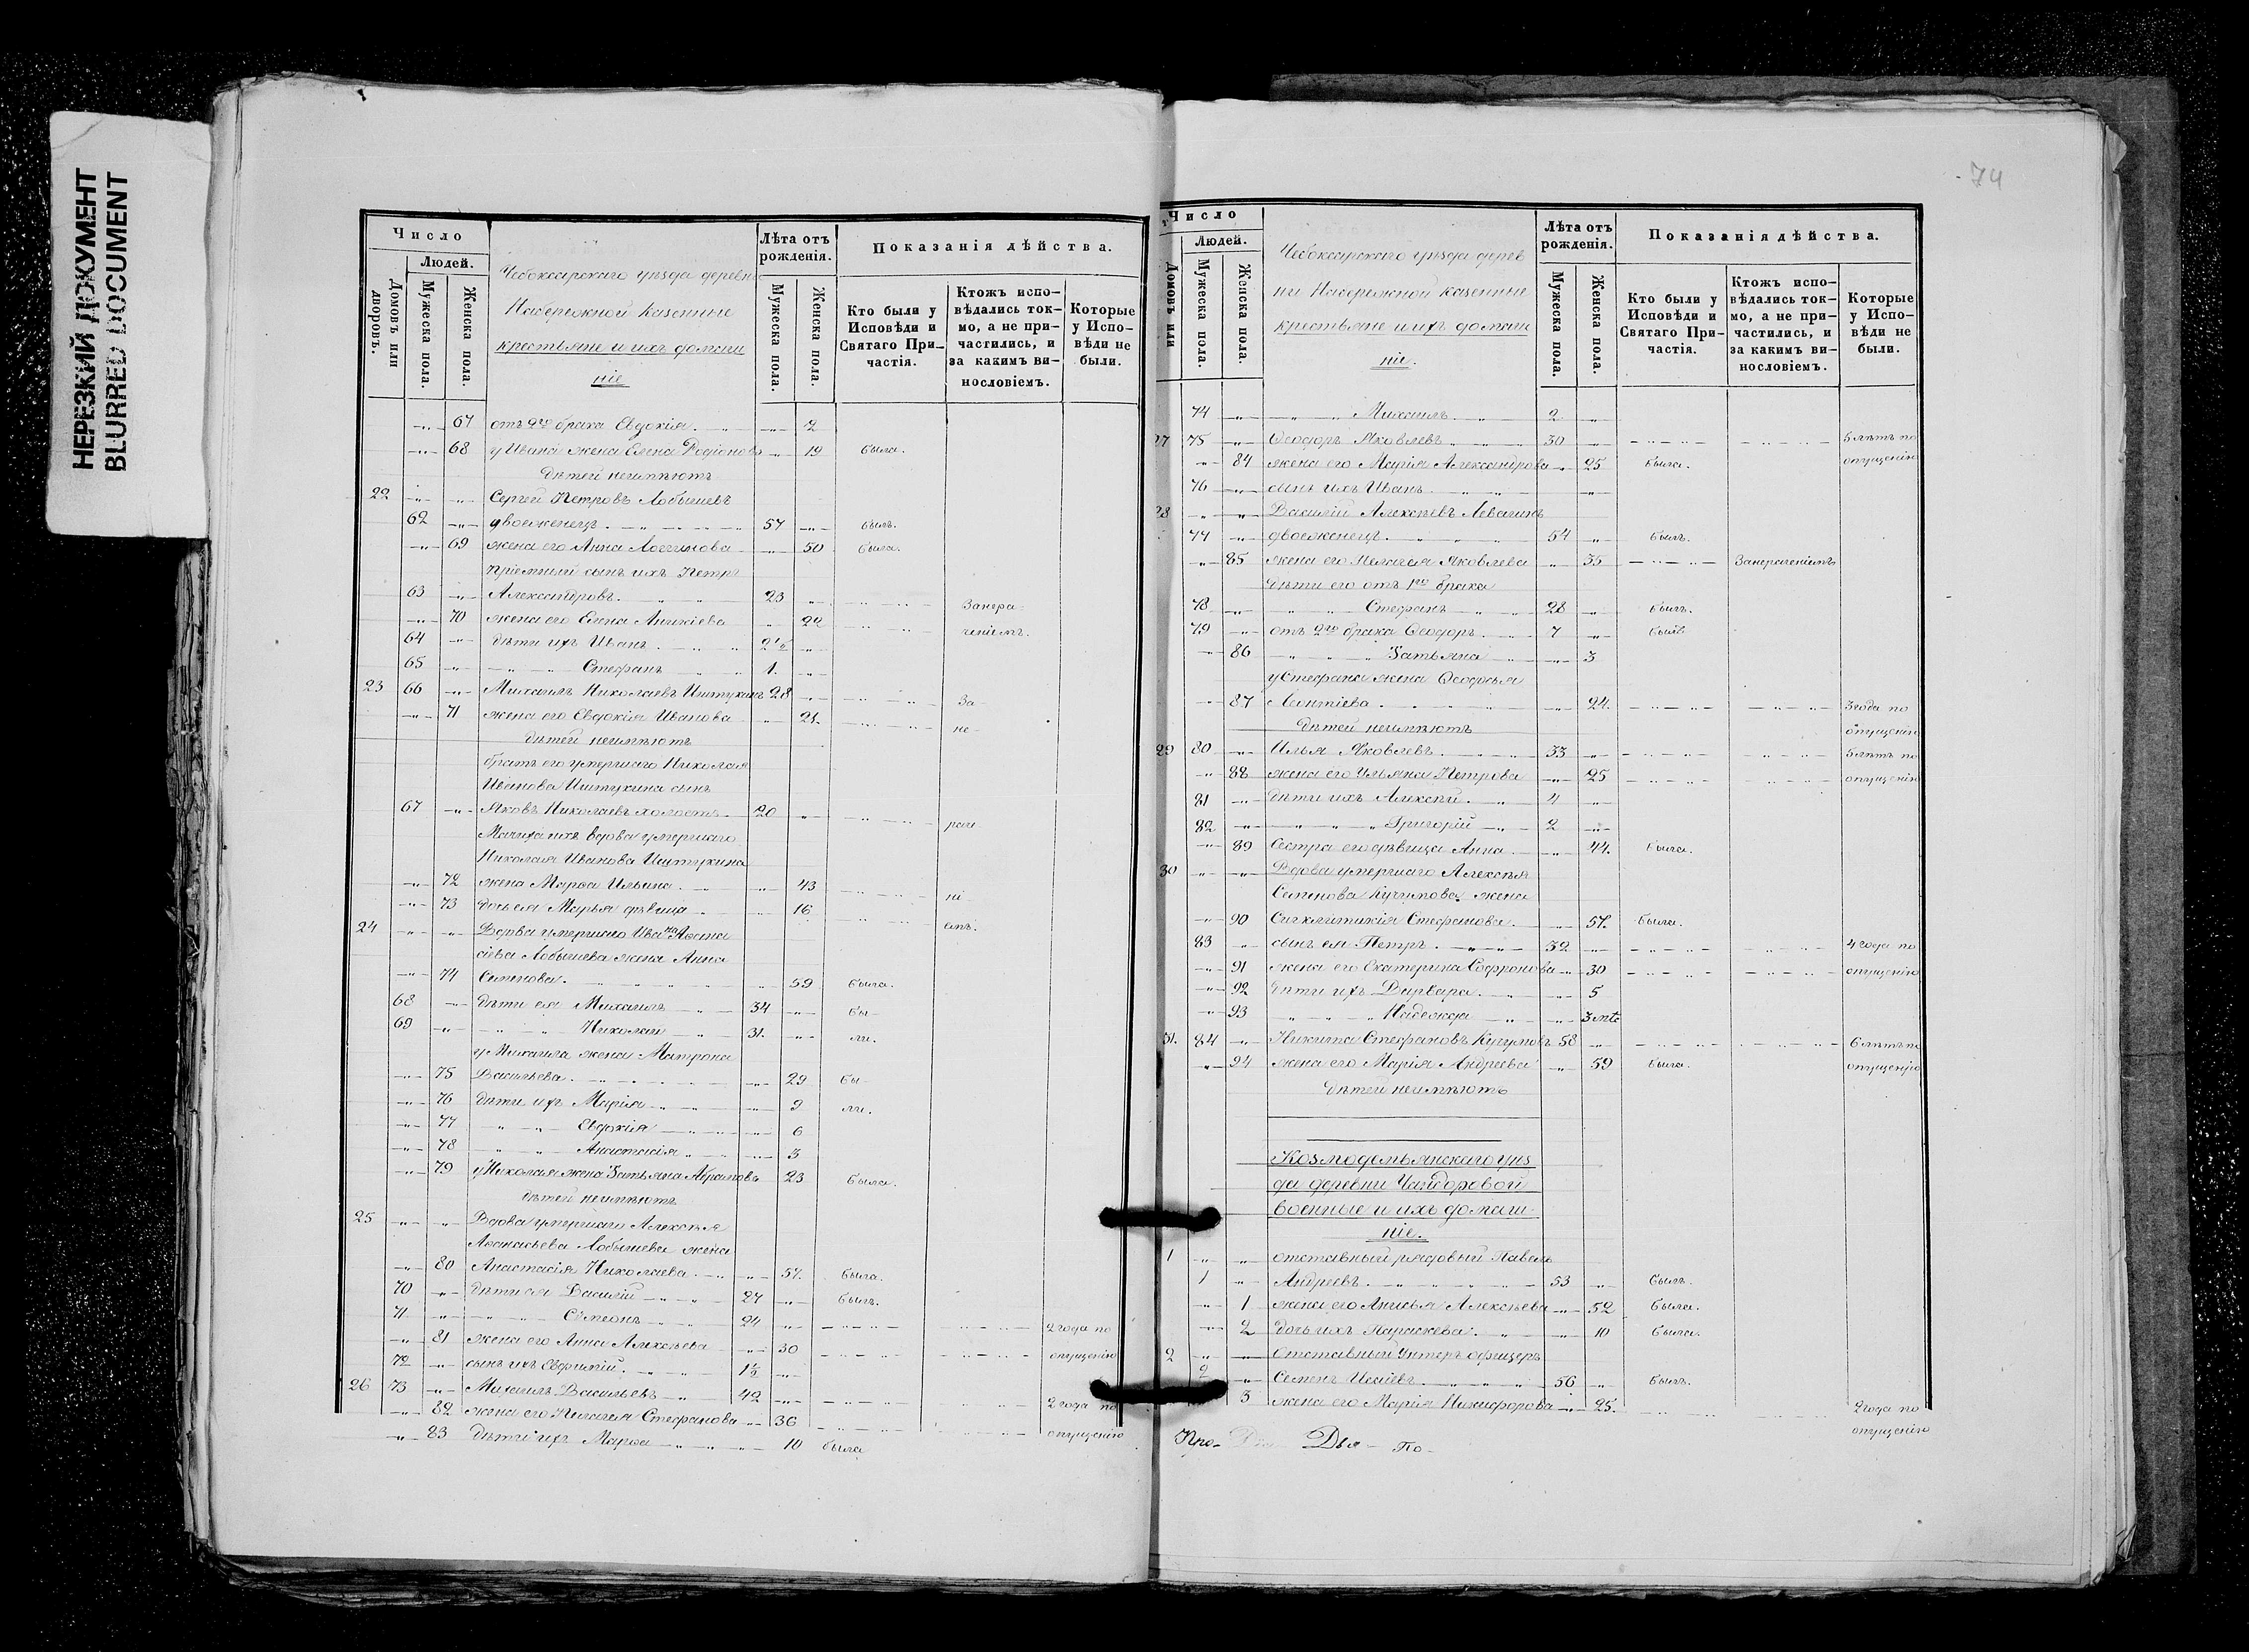 НЕРЕЗКИЙ ДОКУМЕНТ
BLURRED DOCUMENT
Число
Людей.
Домовъ или дворовъ.
Мужеска пола.
Женска пола.
Чебоксарскаго уѣзда деревни
Набережной казенные
крестьяне и ихъ домашніе
Лѣта отъ рожденія.
Мужеска пола.
Женска пола.
Показанія дѣйства.
Кто были у Исповѣди и Святаго Причастія.
Ктожъ исповѣдались токмо, а не причастились, и за какимъ винословіемъ.
Которые у Исповѣди не были.
67 отъ 2го брака Евдокія 2
68 у Ивана жена Елена Родіонова 19 была.
дѣтей неимѣютъ
22 Сергей Петровъ Лобышевъ
62 двоеженецъ 57 былъ.
69 жена его Анна Логгинова 50 была.
пріемный сынъ ихъ Петръ
63 Александровъ 23 Занера-
70 жена его Елена Аникіева 22 ченіемъ.
64 дѣти ихъ Иванъ 2½
65 Стефанъ 1.
23 66 Михаилъ Николаевъ Иштухинъ 28 За-
71 жена его Евдокія Иванова 21. не-
дѣтей неимѣютъ
братъ его умершаго Николая
Иванова Иштухина сынъ
67 Яковъ Николаевъ холостъ 20 рач
Мачиха ихъ вдова умершаго
Николая Иванова Иштухина
72 жена Марѳа Ильина 43 ні
73 дочь ея Марья дѣвица 16 емъ.
24 Вдова умершаго Ивана Аѳана
сіева Лобышева жена Анна
74 Семенова 59 была.
68 дѣти ея Михаилъ 34 бы-
69 Николай 31. ли.
у Михаила жена Матрона
75 Васильева 29 бы-
76 дѣти ихъ Марія 9 ли.
77 Евдокія 6
78 Анастасія 3
79 у Николая жена Татьяна Абрамова 23 была.
дѣтей неимѣютъ
25 Вдова умершаго Алексѣя
Аѳанасьева Лобышева жена
80 Анастасія Николаева 57. была.
70 дѣти ея Василій 27 былъ.
71 Сѵмеонъ 24 2 года по
81 жена его Анна Алексѣева 30 опущенію
72 сынъ ихъ Евфимій 1½
26 73 Михаилъ Васильевъ 42 2 года по
82 жена его Пелагея Стефанова 36 опущенію
83 дѣти ихъ Марѳа 10 была
74
Число
Людей.
Домовъ или
Мужеска пола.
Женска пола.
Чебоксарскаго уѣзда дерев
ни Набережной казенные
крестьяне и ихъ домаш
ніе.
Лѣта отъ рожденія.
Мужеска пола.
Женска пола.
Показанія дѣйства.
Кто были у Исповѣди и Святаго Причастія.
Ктожъ исповѣдались токмо, а не причастились, и за какимъ винословіемъ.
Которые у Исповѣди не были.
74 Михаилъ 2
27 75 Ѳеодоръ Яковлевъ 30 5 лѣтъ по
84 жена его Марія Александрова 25 была. опущенію
76 сынъ ихъ Иванъ
28 Василій Алексѣевъ
77 двоеженецъ 54 былъ.
85 жена его Пелагея Яковлева 35 Занераченіемъ
дѣти его отъ 1го брака
78 Стефанъ 28 былъ.
79 отъ 2го брака Ѳеодоръ 7 былъ
86 Татьяна 3
у Стефана жена Ѳеодосья
87 Леонтіева 24. 3 года по
дѣтей неимѣютъ опущенію
29 80 Илья Яковлевъ 33 5 лѣтъ по
88 жена его Ульяна Петрова 25 опущенію
81 дѣти ихъ Алексѣй 4
82 Григорій 2
89 Сестра его дѣвица Анна 44. была.
30 Вдова умершаго Алексѣя
Семенова Кучумова жена
90 Сигклитикія Стефанова 57. была.
83 сынъ ея Петръ 32 4 года по
91 жена его Екатерина Софронова 30 опущенію
92 дѣти ихъ Варвара 5
93 Надежда 3 мѣс
31. 84 Никита Стефановъ Кучумовъ 58 6 лѣтъ по
94 жена его Марія Андреева 59 была. опущенію
дѣтей неимѣютъ
Козмодемьянскаго уѣз
да деревни
военные и ихъ домаш
ніе.
1 отставный рядовый Павелъ
1 Андреевъ 53 былъ.
1 жена его Анисья Алексѣева 52 была.
2 дочь ихъ Параскева 10 была.
2 Отставный унтеръ офицеръ
2 Семенъ Исаевъ 56 былъ.
3 жена его Марія Никифорова 25. 2 года по
опущенію
Дья- По-